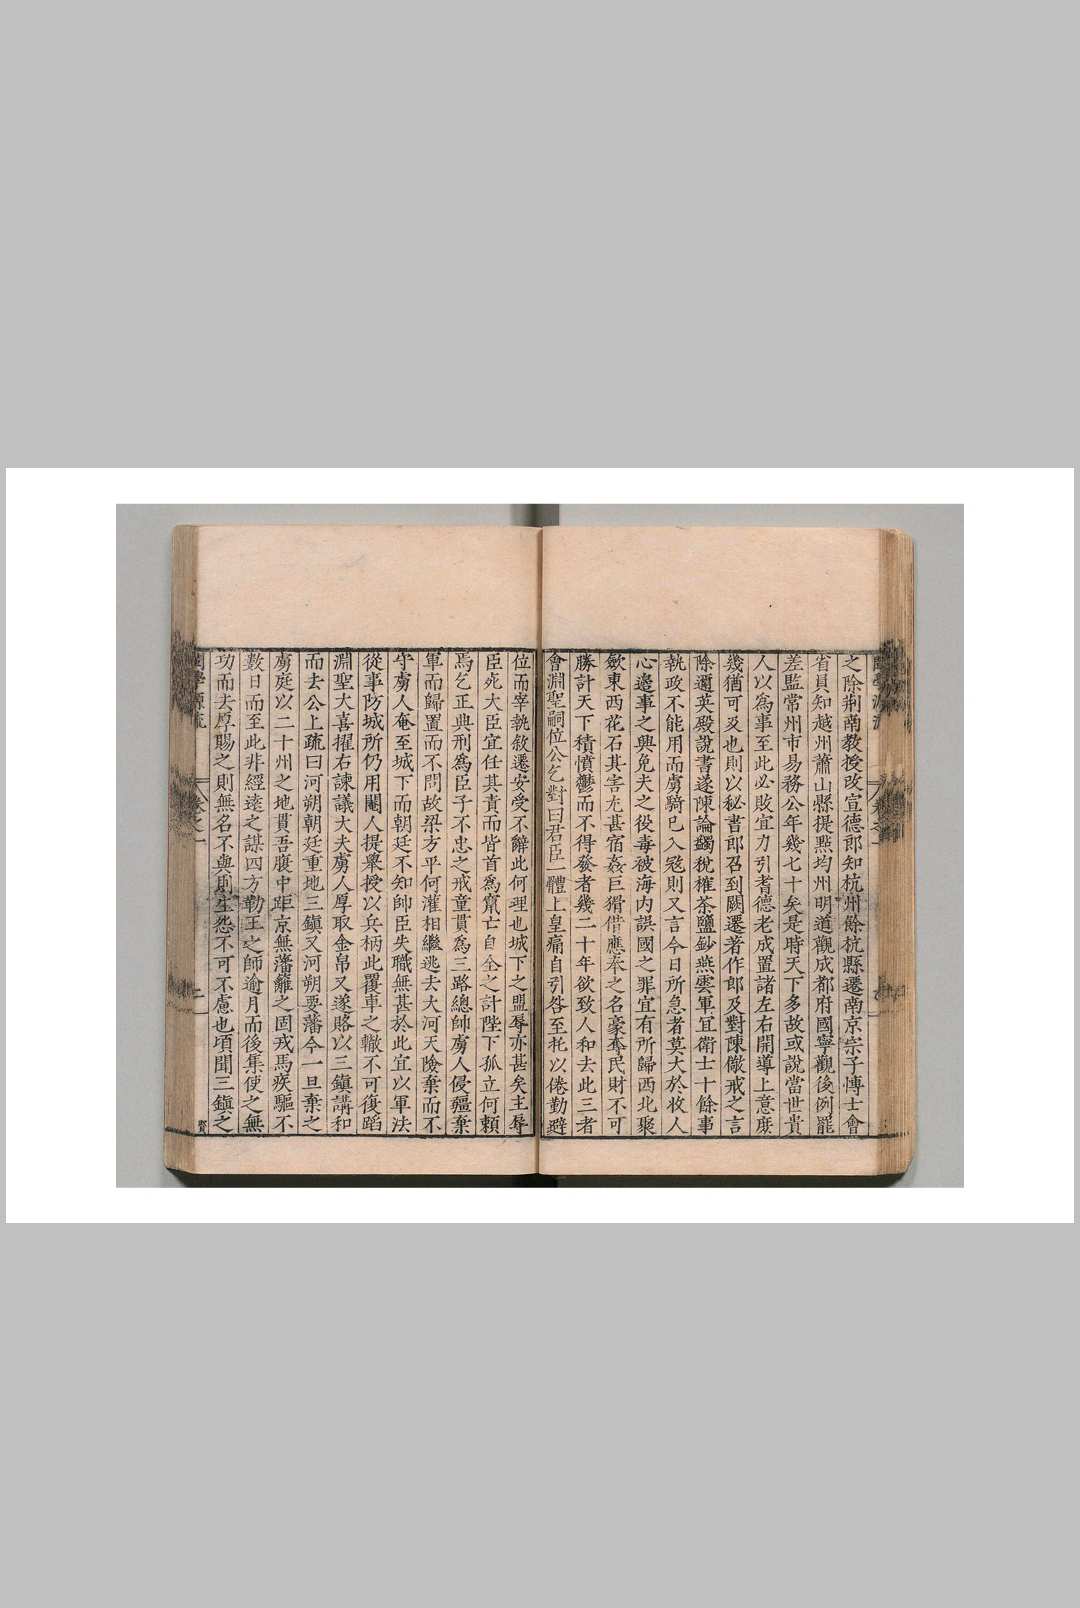 之除荆南教授改宣德郎知杭州餘杭縣遷南京宗子博士會
省員知越州蕭山縣提㸃均州明道觀成都府國寧觀後例罷
差監常州市易務公年幾七十矣是時天下多故或說當世貴
人以爲事至此必敗宜力引耆德老成置諸左右開導上意庶
幾猶可及也則以秘書郎召到闕遷著作郎及對陳儆戒之言
除邇英殿說書遂陳論蠲稅榷茶鹽鈔燕雲軍冗衛士十餘事
執政不能用而虜騎已入冦則又言今日所急者莫大於收人
心邊事之興免夫之役毒被海内誤國之罪宜有所歸西北聚
歛東西花石其害尤甚宿姦巨猾借應奉之名豪奪民財不可
勝計天下積憤鬱而不得發者幾二十年欲致人和去此三者
會淵聖嗣位公乞對曰君臣一體上皇痛自引咎至托以倦勤避
位而宰執敘遷安受不辭此何理也城下之盟辱亦甚矣主辱
臣死大臣宜任其責而皆首爲竄亡自全之計陛下孤立何賴
焉乞正典刑爲臣子不忠之戒童貫爲三路總帥虜人侵疆棄
軍而歸置而不問故梁方平何灌相繼逃去大河天險棄而不
守虜人奄至城下而朝廷不知帥臣失職無甚於此宜以軍法
從事防城所仍用閹人提舉授以兵柄此覆車之轍不可復蹈
淵聖大喜擢右諫議大夫虜人厚取金帛又遂賂以三鎮講和
而去公上疏曰河朔朝廷重地三鎮又河朔要藩今一旦棄之
虜庭以二十州之地貫吾腹中距京無藩籬之固戎馬疾驅不
數日而至此非經遠之謀四方勤王之師逾月而後集使之無
功而去厚賜之則無名不與則生怨不可不慮也頃聞三鎮之
學源流 卷之一